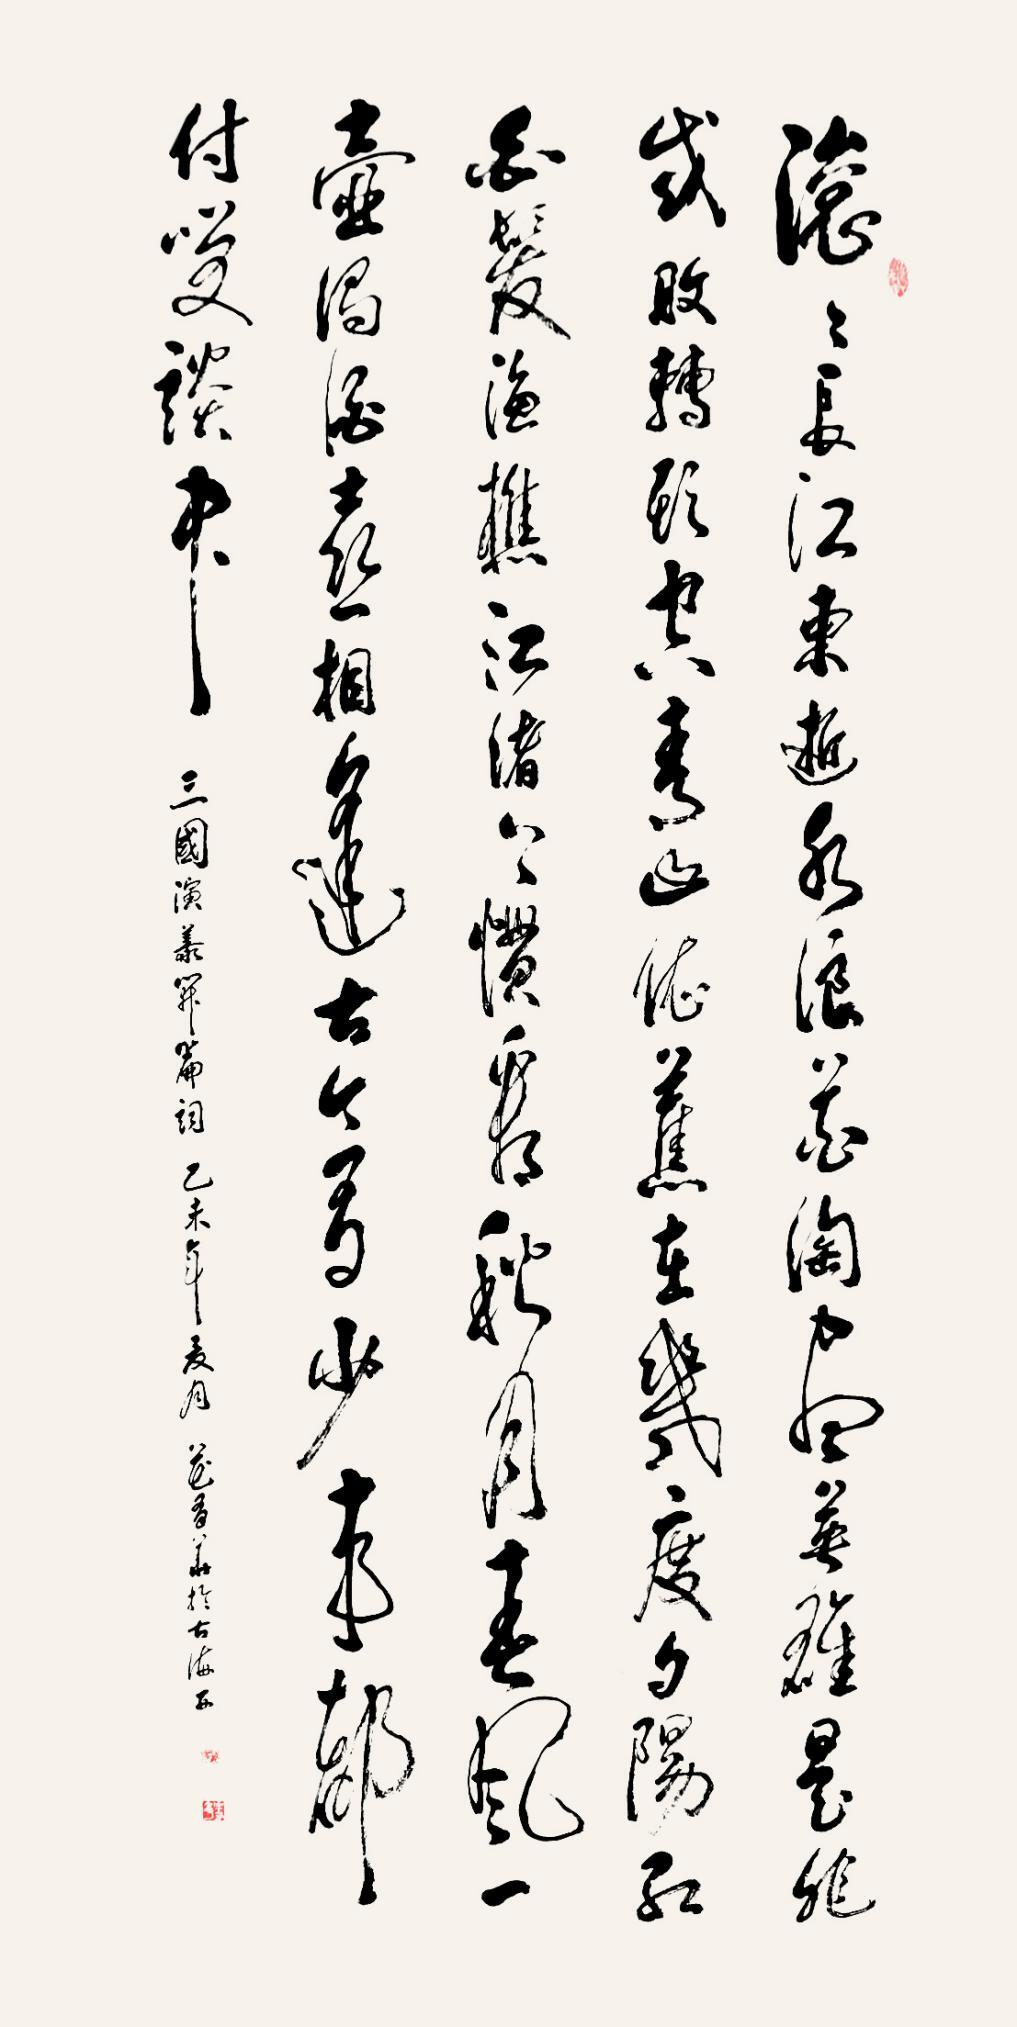 滚々長江東逝水浪花淘尽英雄是非
成敗轉頭空青山依舊在幾度夕陽紅
白髮漁樵江渚上慣看秋月春風一
壺濁酒喜相逢古今多少事都
付笑談中
三國演義開篇詞 乙未年夏月 於古海